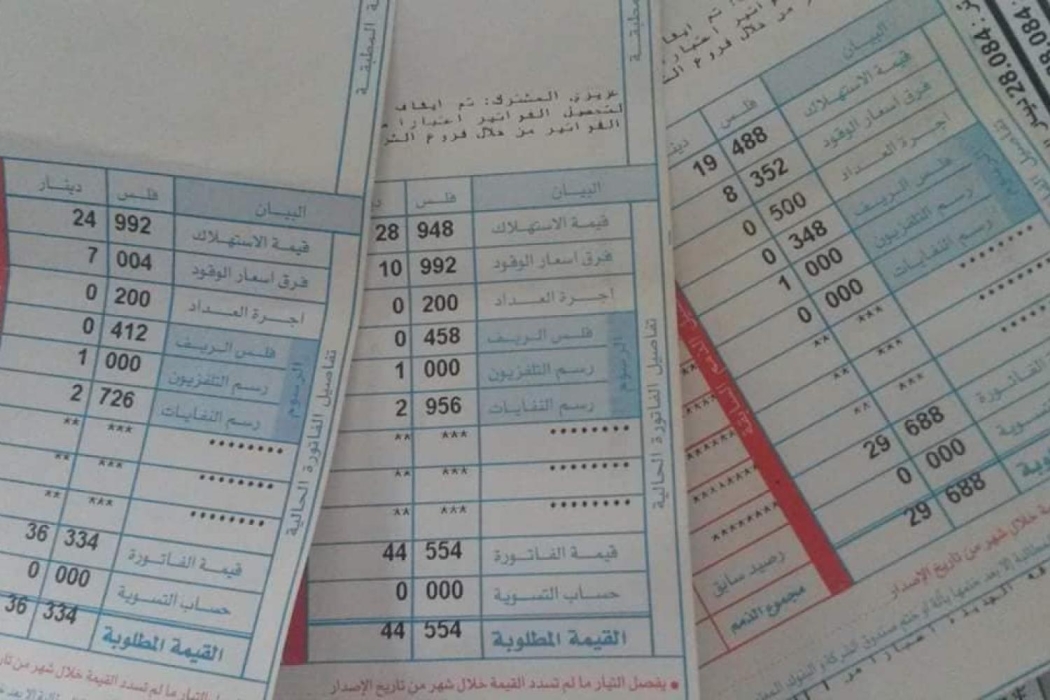 ة المطبقة
دينار فلس البيان
24 992 قيمة الاستهلاك
7 004 فرق اسعار الوقود
0 200 اجرة العداد
0 412 فلس الريف
1 000 رسم التلفزيون
2 726 رسم النفايات
الرسوم
** *** ••••••••
** *** ••••••••
** *** ••••••••
36 334 قيمة الفاتورة
0 000 حساب التسوية
36 334 القيمة المطلوبة
تفاصيل الفاتورة الحالية
التيار ما لم تسدد القيمة خلال شهر من تار
المطبقة
عزيزي المشترك: تم ايقاف
لتحصيل الفواتير اعتبارا م
الفواتير من خلال فروع الشر
د فلس البيان
28 948 قيمة الاستهلاك
10 992 فرق اسعار الوقود
0 200 اجرة العداد
0 458 فلس الريف
1 000 رسم التلفزيون
2 956 رسم النفايات
الرسوم
** *** ••••••••
** *** ••••••••
** *** ••••••••
44 554 قيمة الفاتورة
0 000 حساب التسوية
44 554 القيمة المطلوبة
تفاصيل الفاتورة الحالية
• يفصل التيار ما لم تسدد القيمة خلال شهر من تاريخ الإصدار
من خلال فروع الش
28.084
دينار فلس البيان
19 488 قيمة الاستهلاك
8 352 فرق اسعار الوقود
0 500 اجرة العداد
0 348 فلس الريف
1 000 رسم التلفزيون
0 000 رسم النفايات
** ***
** ***
** ***
29 688 الفاتورة
0 000 سوية
29 688
رصيد سابق
مجموع الذمم
ة خلال شهر من تاريخ الإصدار